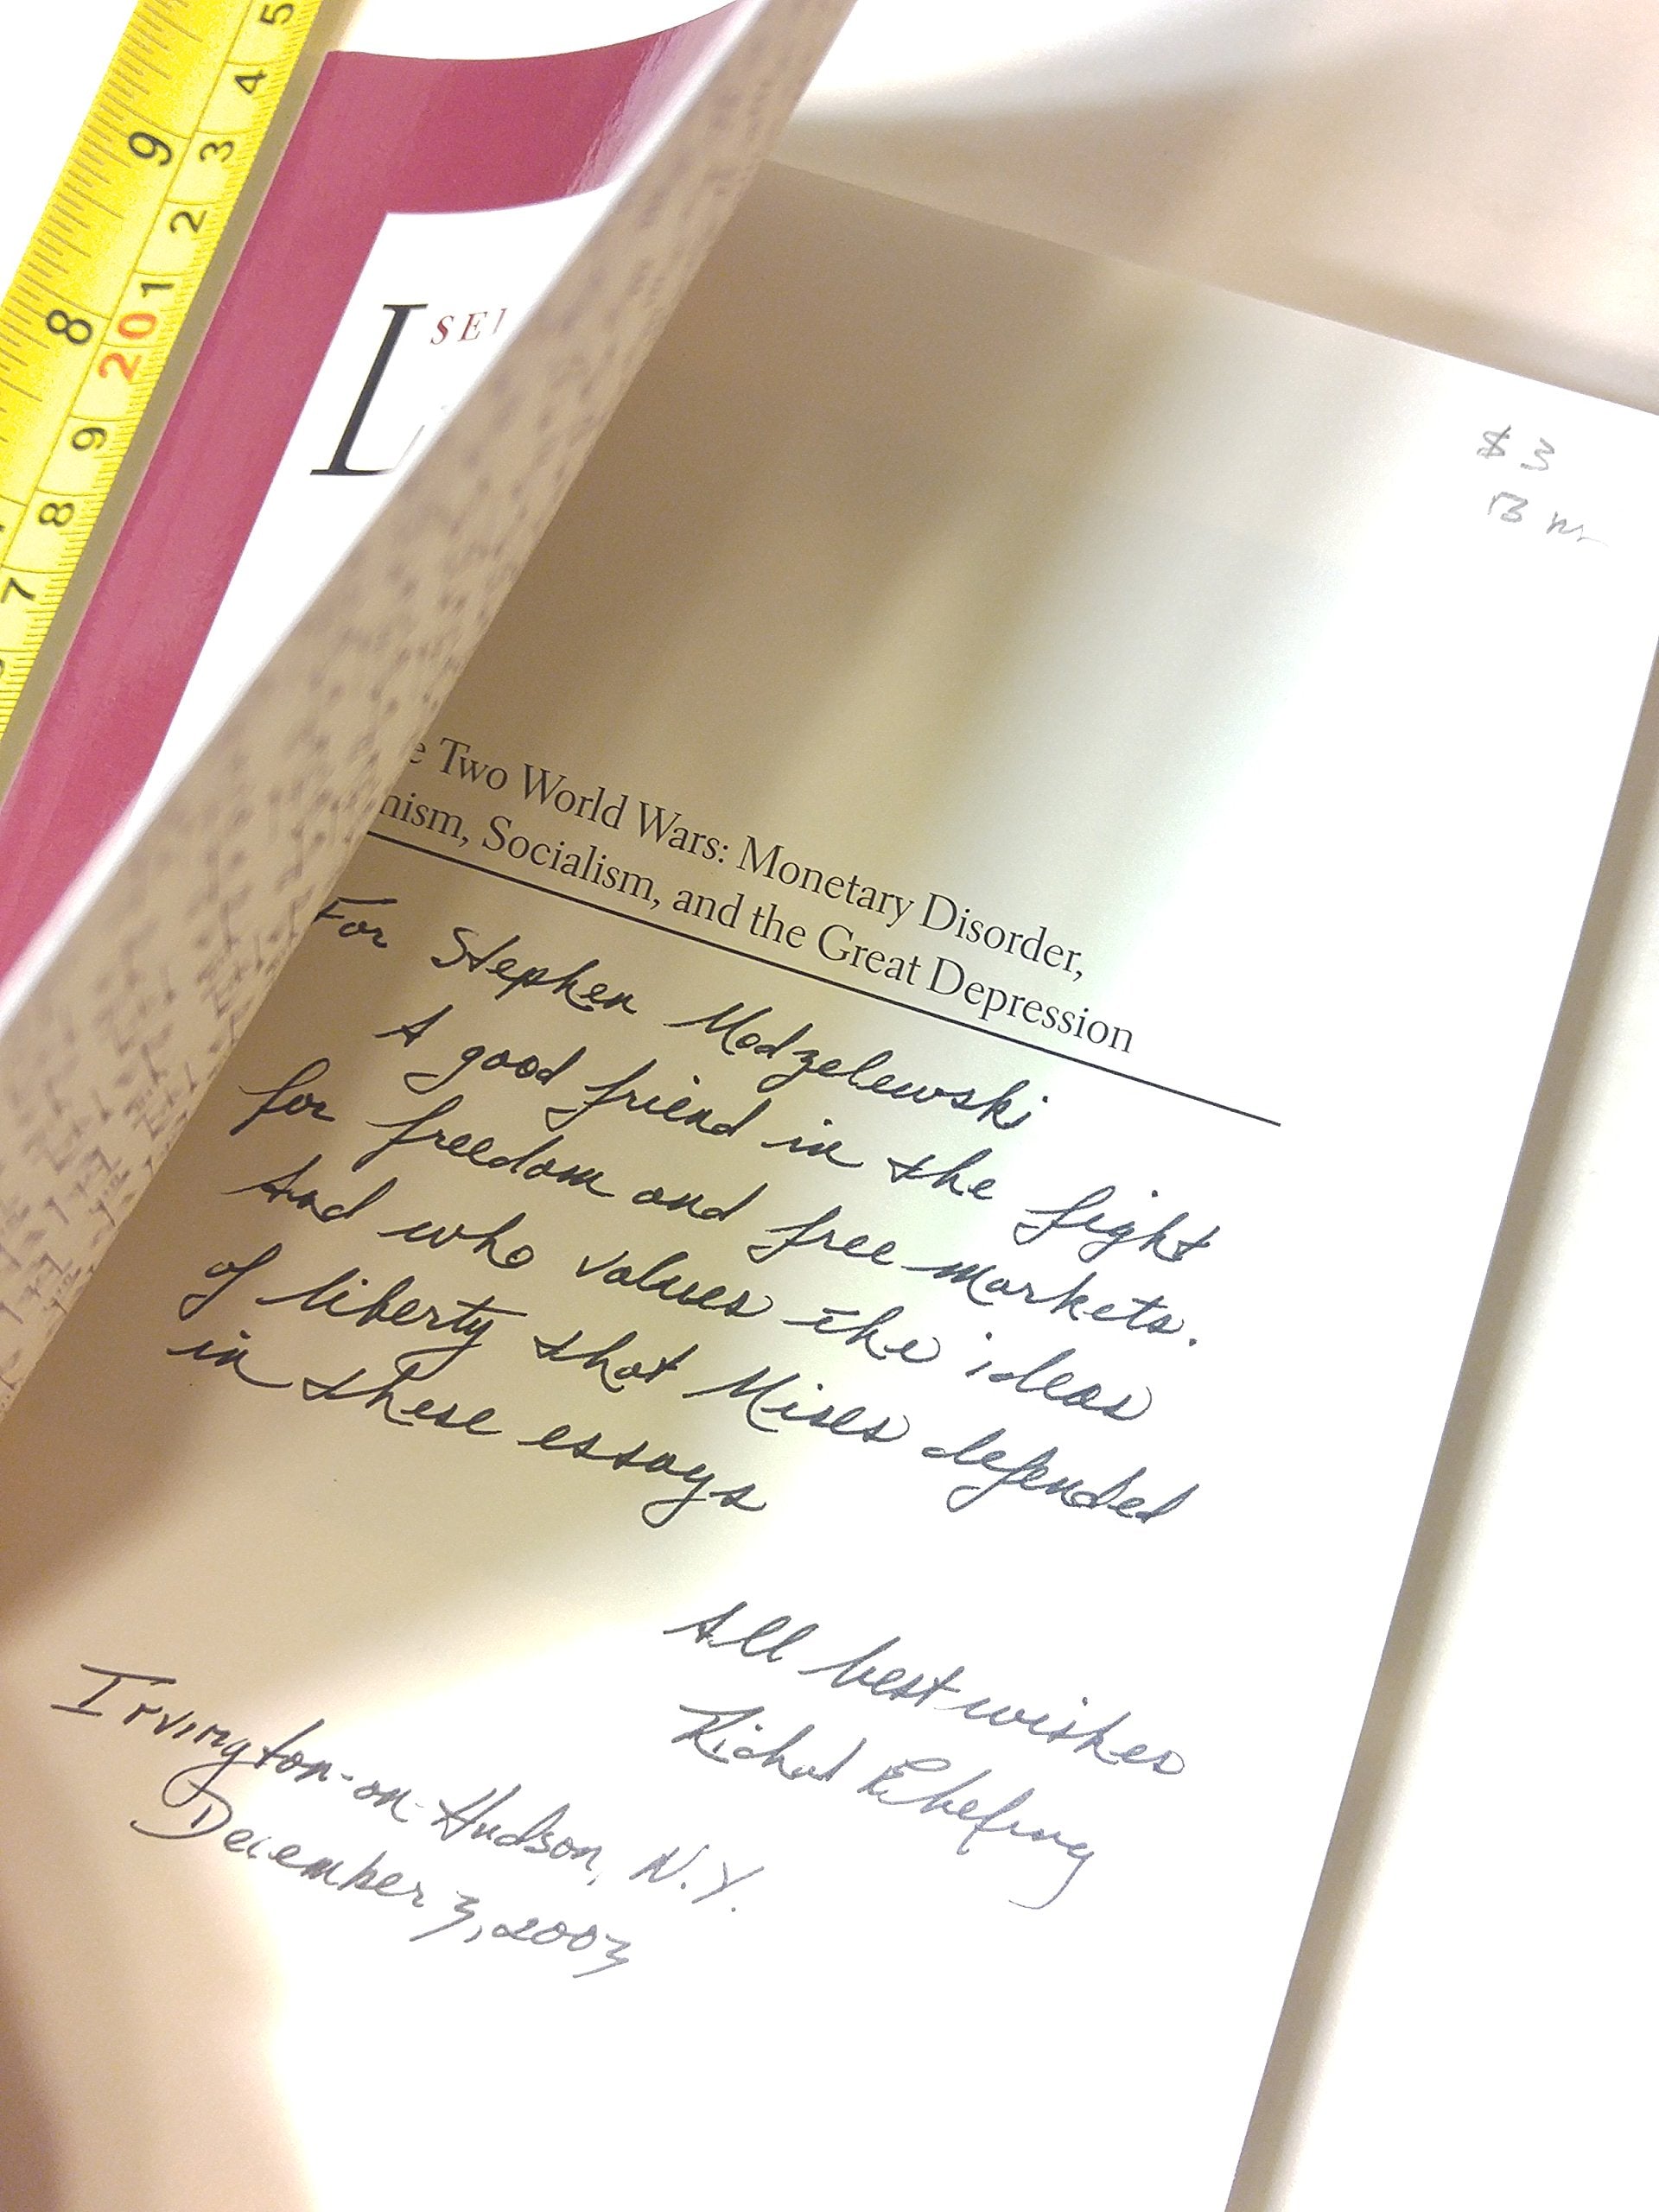 5
4
9
3
2
1
8
20
9
8
7
L
SE
$3
e Two World Wars: Monetary Disorder,
nism, Socialism, and the Great Depression
For Stephen Modzelewski
A good friend in the fight
for freedom and free markets.
And who values the ideas
of liberty that Mises defended
in these essays
All best wishes
Richard Ebeling
Irvington-on-Hudson, N.Y.
December 3, 2003